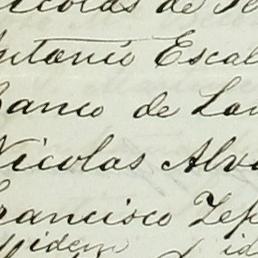 icolas de Te
Antonio Escal
Banco de Lon
Nicolas Alva
Francisco Zep
idem id